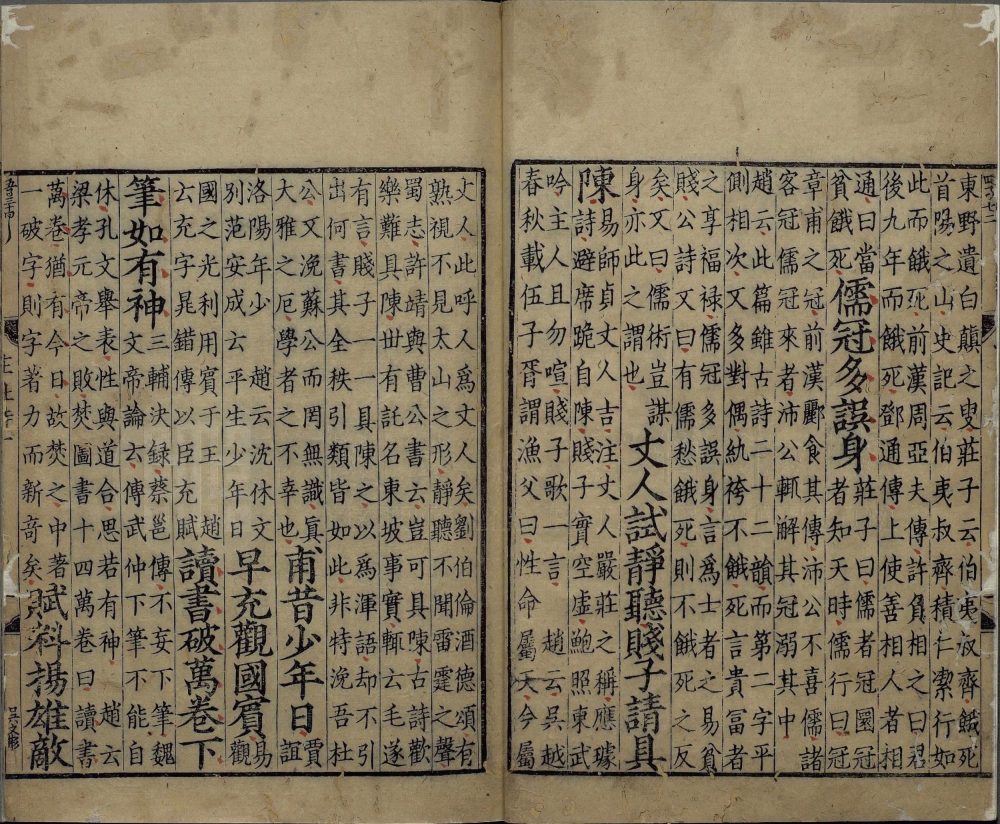 東野遺白顛之叟莊子云伯夷叔齊餓死
首陽之山史記云伯夷叔齊積仁潔行如
此而餓死前漢周亞夫傳許負相之曰君
後九年而餓死鄧通傳上使善相人者相
通曰當貧餓死儒冠多誤身莊子曰儒者冠圜冠
者知天時儒行曰冠
章甫之冠前漢酈食其傳沛公不喜儒諸
客冠儒冠來者沛公輒解其冠溺其中
趙云此篇雖古詩二十二韻而第二字平
側相次又多對偶紈袴不餓死言貴冨者
之享福禄儒冠多誤身言爲士者之易貧
賤公詩又曰有儒愁餓死則不餓死之反
矣又曰儒術豈謀
身亦此之謂也丈人試靜聽賤子請具
陳易師貞丈人吉注丈人嚴莊之稱應璩
詩避席跪自陳賤子實空虛鮑照東武
吟主人且勿喧賤子歌一言趙云吳越
春秋載伍子胥謂漁父曰性命屬天今屬
丈人此呼人爲丈人矣劉伯倫酒德頌有
熟視不見太山之形靜聽不聞雷霆之聲
蜀志許靖與曹公書云豈可具陳古詩歡
樂難具陳世有託名東坡事實輒云毛遂
有言賤子一一具陳之以爲渾語却不引
出何書其全秩引類皆如此非特浼吾杜
公又浼蘇公而罔無識真
大雅之厄學者之不幸也甫昔少年日賈誼
洛陽年少趙云沈休文
別范安成云平生少年日早充觀國賓易觀
國之光利用賓于王趙
云充字晁錯傳以臣充賦讀書破萬卷下
筆如有神三輔決録蔡邕傳不妄下筆魏
文帝論云傳武仲下筆不能自
休孔文舉表性與道合思若有神趙云
梁孝元帝之敗焚圖書十四萬卷曰讀書
萬卷猶有今日故焚之中著
一破字則字著力而新竒矣賦料揚雄敵
吳文彬